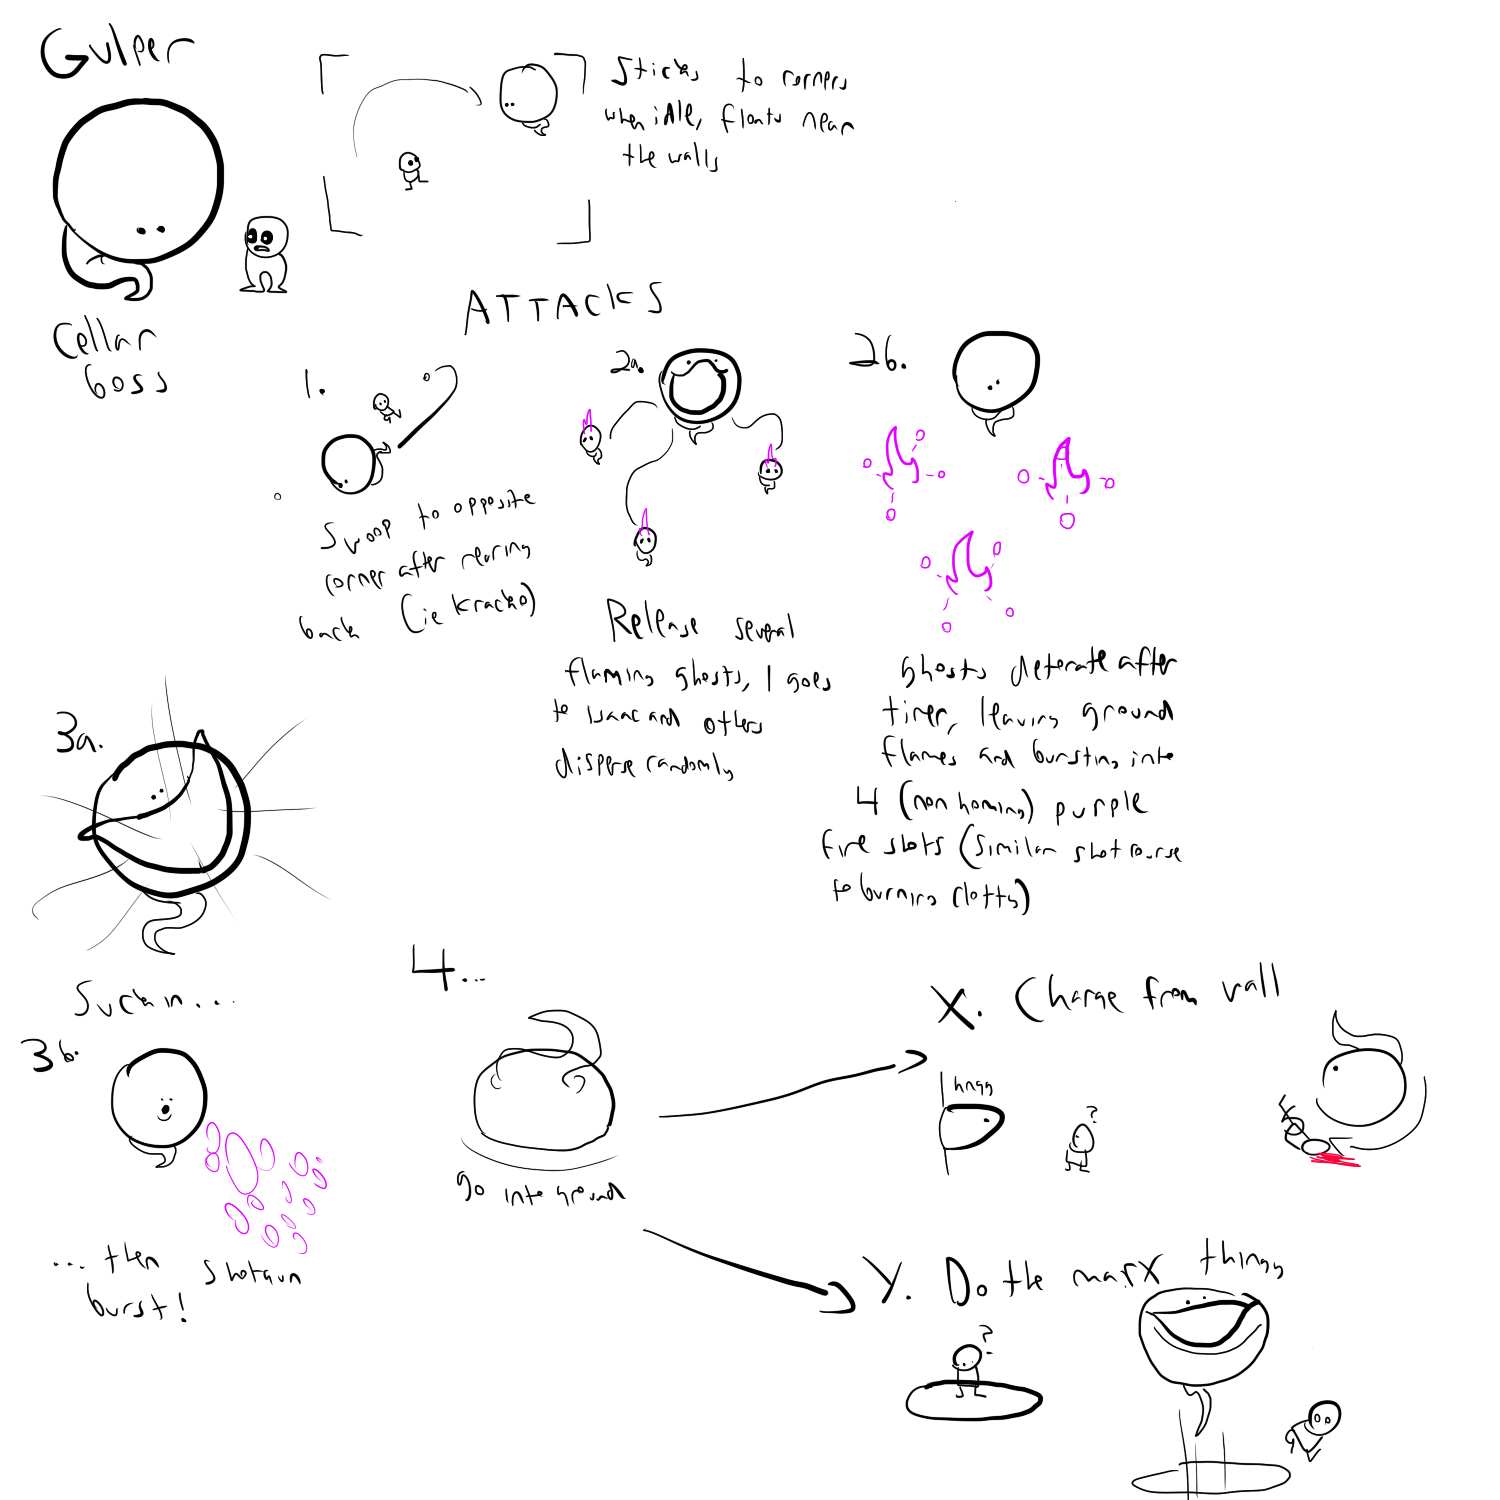 Gulper
Sticks to corners
when idle, floats near
the walls
Cellar
boss
ATTACKS
1.
Swoop to opposite
corner after rearing
back (ie Kracko)
2a.
Release several
flaming ghosts, 1 goes
to Isaac and others
disperse randomly
2b.
ghosts detonate after
timer, leaving ground
flames and bursting into
4 (non homing) purple
fire shots (similar shot course
to burning clotty)
3a.
Suck in...
3b.
... then shotgun
burst!
4...
go into ground
X. Charge from wall
hngg
?
Y. Do the marx thingy
?